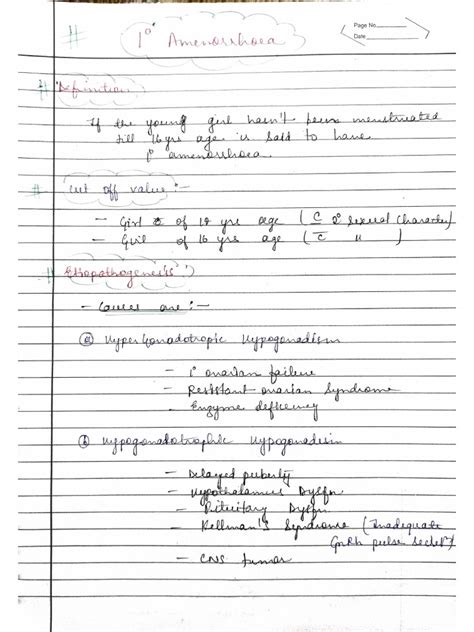 Page No.
Date
1° Amenorrhoea
# Definition
If the young girl hasn't been menstruated
till 16 yrs age is said to have
1° amenorrhoea.
# Cut off value :-
- Girl of yrs age ( C̅ 2° sexual character)
- Girl of 16 yrs age ( C̅ " )
# Etiopathogenesis :)
- Causes are :-
(a) Hyper Gonadotropic Hypogonadism
- 1° ovarian failure
- Resistant ovarian Syndrome
- Enzyme deficiency
(b) Hypogonadotrophic Hypogonadism
- Delayed puberty
- Hypothalamus Dysfn
- Pituitary Dysfn
- Kellman's Syndrome (Inadequate
GnRh pulse secretn)
- CNS tumar